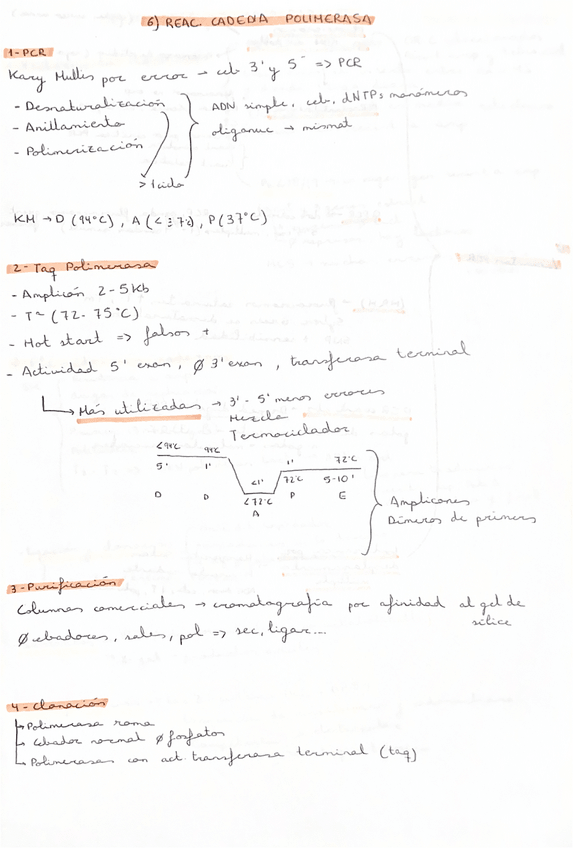 6) REAC. CADENA POLIMERASA
1-PCR
Kary Mullis por error → ceb 3' y 5' => PCR
- Desnaturalización
- Anillamiento
- Polimerización
ADN simple, ceb, dNTPs monómeros
oliganuc → mismat
> 1 ciclo
KM → D (94°C), A (< : 72), P (37°C)
2- Taq Polimerasa
- Amplicón 2-5Kb
- Tª (72-75°C)
- Hot start => falsos +
- Actividad 5' exon, ∅ 3' exon, transferasa terminal
↳ Más utilizadas → 3' - 5' menos errores
Mezcla
Termociclador
<94°C 94°C 1' 72°C
5' 1' <1' 72°C 5-10'
D D <72°C P E
A
Amplicones
Dímeros de primers
3-Purificación
Columnas comerciales → cromatografía por afinidad al gel de
sílice
∅ cebadores, sales, pol => sec, ligar...
4- Clonación
↳ Polimerasa roma
↳ Cebador normal ∅ fosfatos
↳ Polimerasas con act. transferasa terminal (taq)